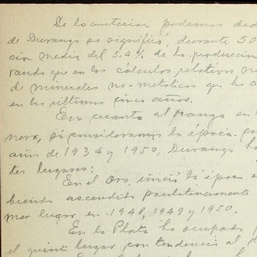 De lo anterior podemos ded
de Durango se significó, durante 50
ción media del 5.4% de la producción
rando que en los cálculos relativos no
de minerales no-metálicos que ha a
en los últimos cinco años.
En cuanto al rango en
nera, si consideramos la época com
años de 1934 y 1950, Durango ha
tes lugares:
En el Oro, inició la época
biendo ascendido paulatinamente
mer lugar en 1948, 1949 y 1950.
En la Plata ha ocupado
el quinto lugar con tendencia al